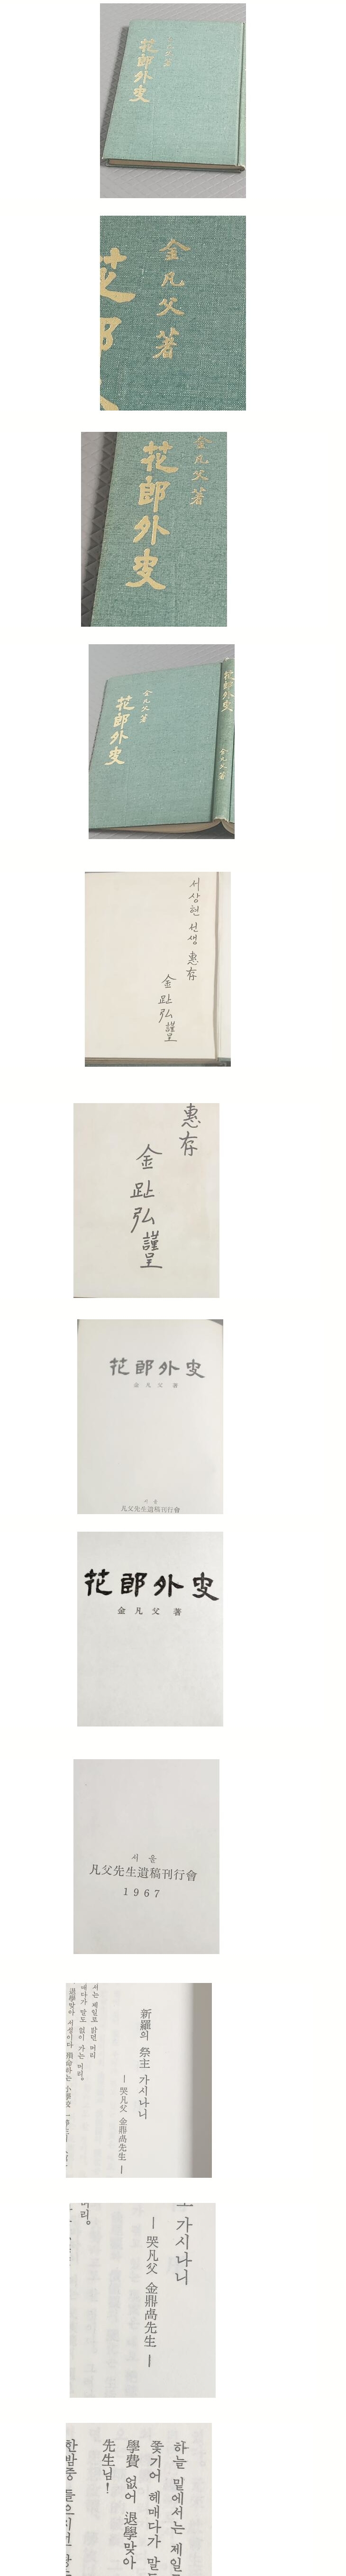 花郎外史
金凡父 著
花郎外史
金凡父著
花郎外史
金凡父著
花郎外史
金凡父著
서상현 선생 惠存
金趾弘 謹呈
惠存
金趾弘 謹呈
花郎外史
金 凡 父 著
서 울
凡父先生遺稿刊行會
花郎外史
金 凡 父 著
서 울
凡父先生遺稿刊行會
1967
新羅의 祭主 가시나니
— 哭凡父 金鼎卨先生 —
서는 제일로 밝던 머리
매다가 말도 없이 가는 머리。
가시나니
— 哭凡父 金鼎卨先生 —
머리。
하늘 밑에서는 제일
쫓기어 헤매다가 말도
學費 없어 退學맞아
先生님!